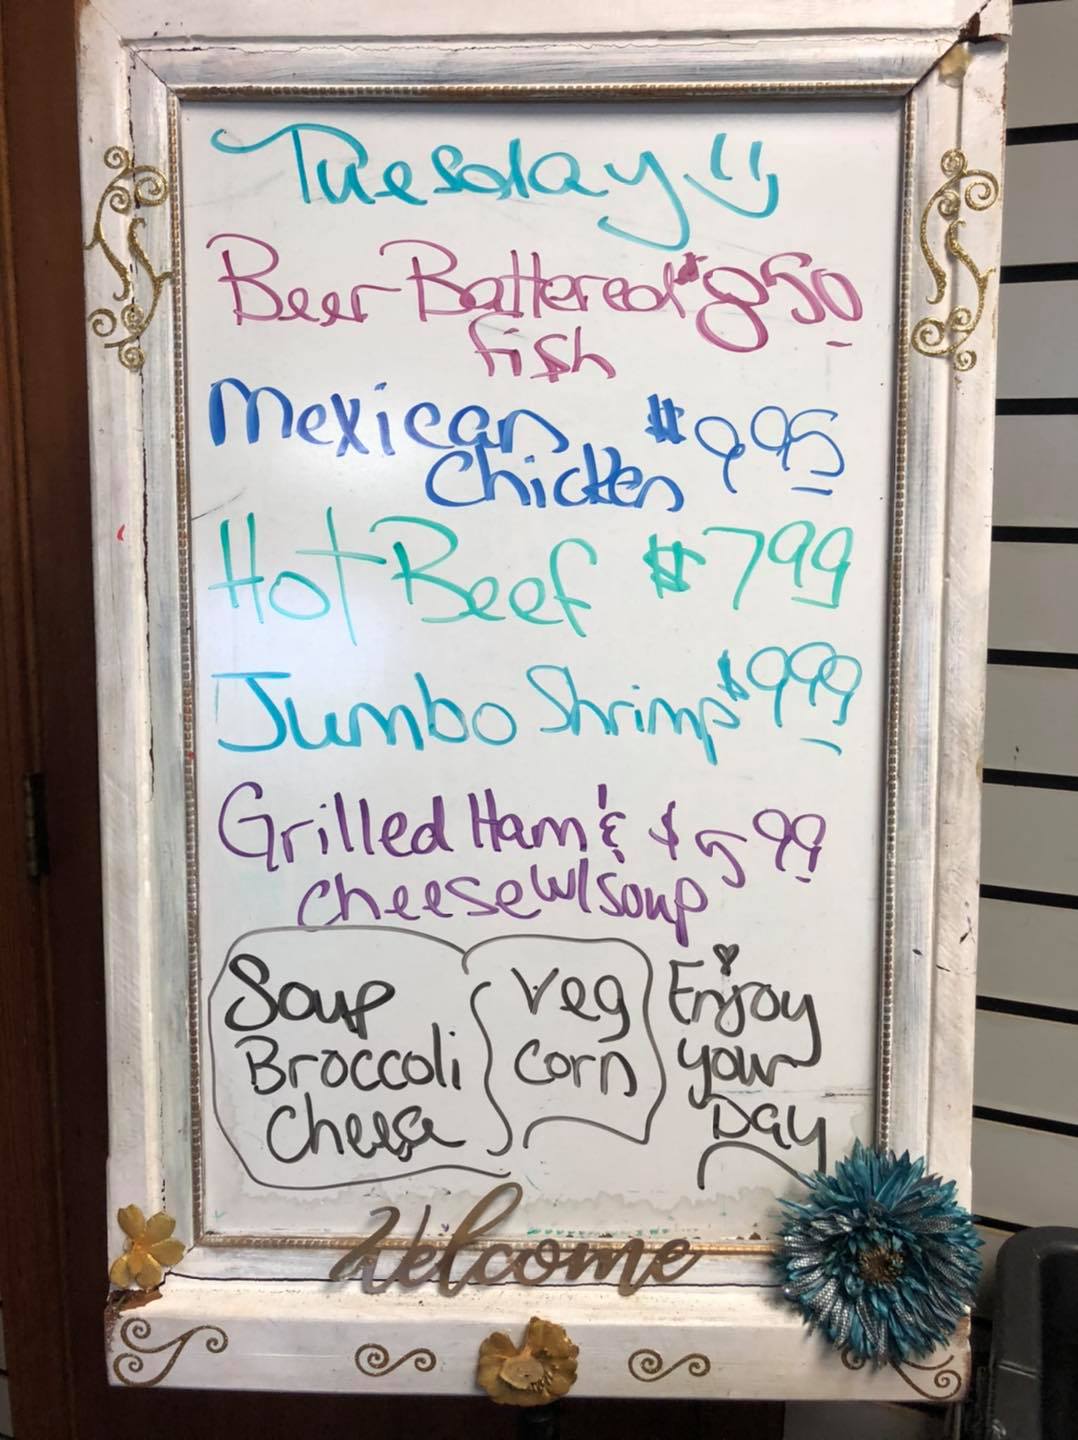 Tuesday
Beer Battered $8 50
fish
Mexican $9 95
Chicken
Hot Beef $7 99
Jumbo Shrimp $9 99
Grilled Ham & $5 99
cheese w/soup
Soup
Broccoli
Cheese
Veg
Corn
Enjoy
your
Day
Welcome